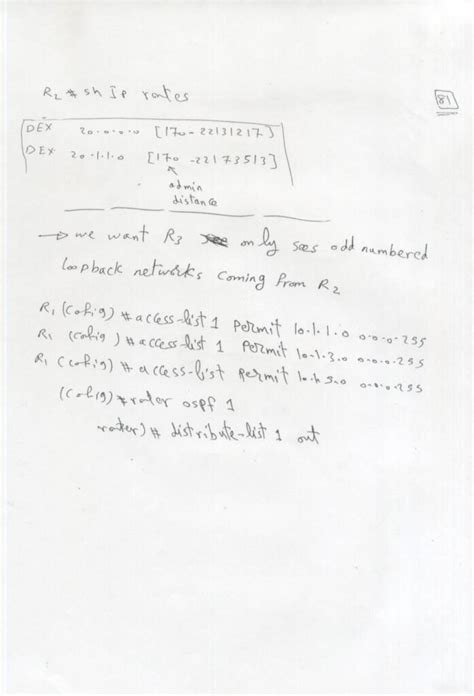 81
R2 # sh Ip routes
DEX 20.0.0.0 [170-22131217]
DEX 20.1.1.0 [170-22173513]
admin
distance
→ we want R3 only sees odd numbered
loopback networks coming from R2
R1 (Cofig) # access-list 1 permit 10.1.1.0 0.0.0.255
R1 (cofig) # access-list 1 permit 10.1.3.0 0.0.0.255
R1 (cofig) # access-list permit 10.1.5.0 0.0.0.255
(cofig) # router ospf 1
router) # distribute-list 1 out